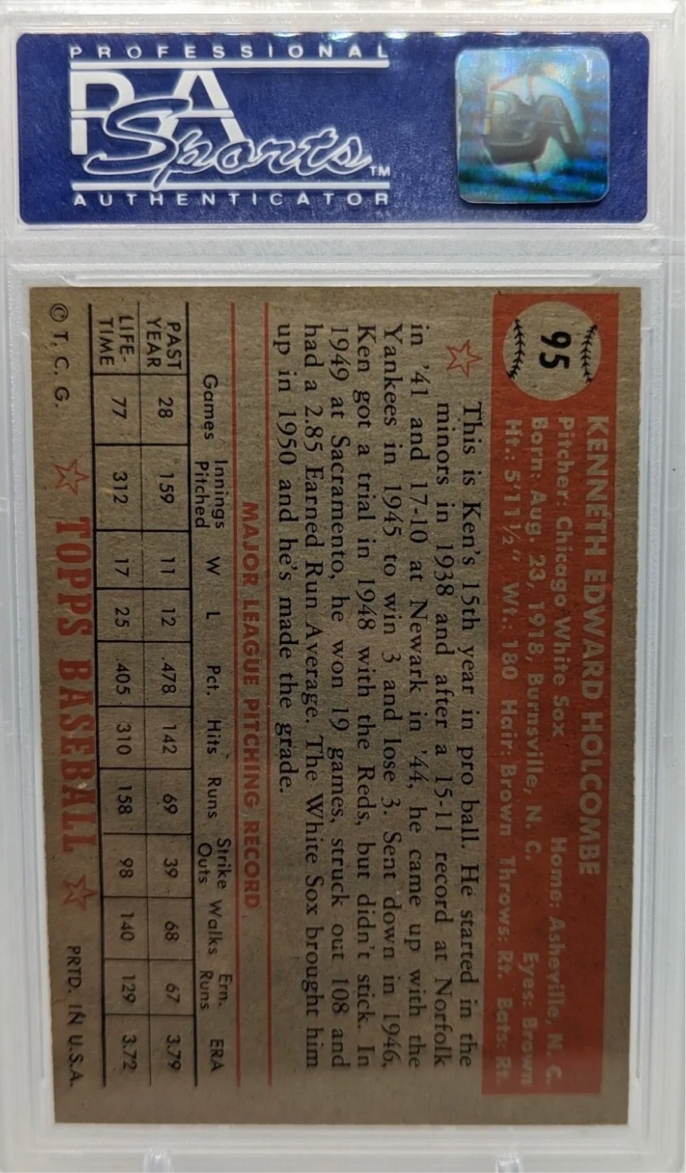 PROFESSIONAL
PSA
Sports™
AUTHENTICATOR
95
KENNETH EDWARD HOLCOMBE
Pitcher: Chicago White Sox Home: Asheville, N. C.
Born: Aug. 23, 1918, Burnsville, N. C. Eyes: Brown
Ht.: 5'11½" Wt.: 180 Hair: Brown Throws: Rt. Bats: Rt.
This is Ken's 15th year in pro ball. He started in the
minors in 1938 and after a 15-11 record at Norfolk
in '41 and 17-10 at Newark in '44, he came up with the
Yankees in 1945 to win 3 and lose 3. Sent down in 1946,
Ken got a trial in 1948 with the Reds, but didn't stick. In
1949 at Sacramento, he won 19 games, struck out 108 and
had a 2.85 Earned Run Average. The White Sox brought him
up in 1950 and he's made the grade.
MAJOR LEAGUE PITCHING RECORD
Games Innings Pitched W L Pct. Hits Runs Strike Outs Walks Ern. Runs ERA
PAST YEAR 28 159 11 12 .478 142 69 39 68 67 3.79
LIFE-TIME 77 312 17 25 .405 310 158 98 140 129 3.72
© T. C. G. TOPPS BASEBALL PRTD. IN U.S.A.